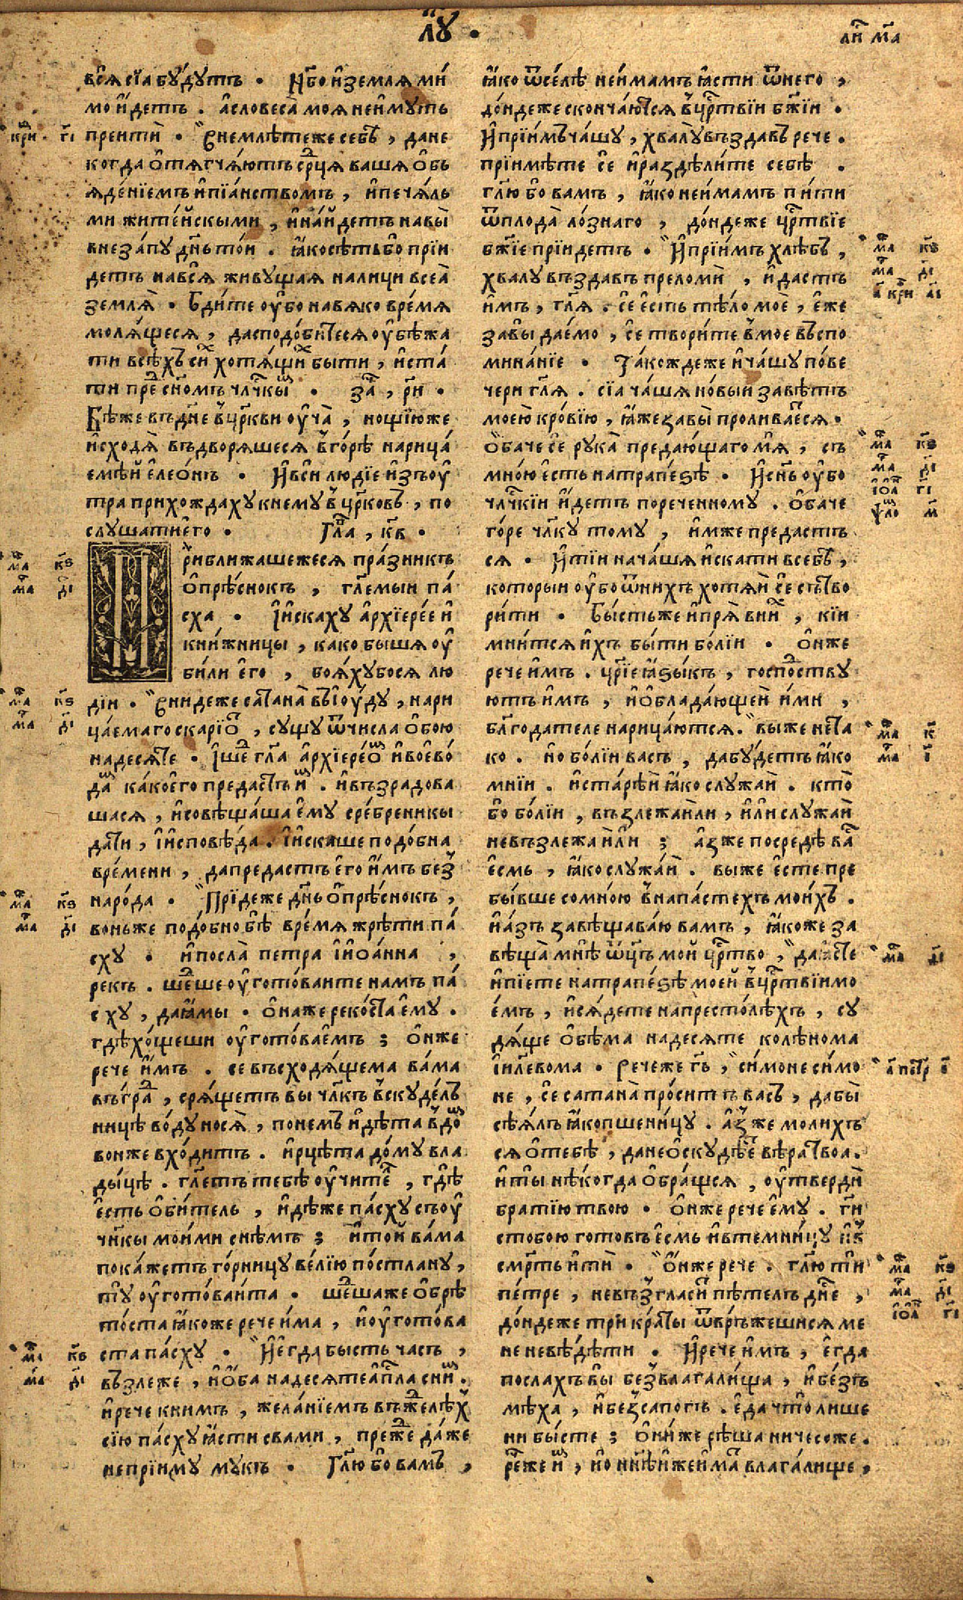 лꙋ
вся сїа бꙋ́дꙋтъ . Н҃бо и҆ земля̀ ми
мо и҆детъ . а҆ словеса̀ моя̀ не и҆мꙋть
преитѝ . Внемлѣте же себѣ , да не
когда ѡ҆тягчаю́тъ ср҃ца ваша ѻ҆бъ
яде́нїемъ и҆ пїа́нствомъ , и҆ печа́ль
ми жите́йскыми , и҆ на́йдетъ на вы̀
внеза́пꙋ дн҃ь то́и . ꙗ҆́ко сѣть бо прїи
детъ на вся̀ живꙋщая на лици всеѧ̀
земля̀ . Бди́те ᲂу҆́бо на всяко вре́мя
моля́щеся , да сподо́битеся ᲂу҆бѣжа
ти всѣ́хъ си́х хотя́щих бы́ти , и҆ ста́
ти пред сн҃омъ чл҃чкым . за , рн .
Бѣ́ же въ дн҃е в цр҃кви ᲂу҆ча̀ , нощїю же
и҆сходя̀ въдворяшеся в го́рѣ нарица́
емѣй є҆лео́нъ . И҆ вси лю́дїе и҆зъ ᲂу҆
тра прихождахꙋ к немꙋ в цр҃ковь , по
слꙋшати є҆го . Гла , кв .
Приближашежеся пра́зникъ
ѡ҆прѣ́снокъ , гл҃емыи па́
сха . І҆ и҆скахꙋ а҆рхїере́е и҆
кни́жницы , како бы́шя ᲂу҆
били є҆го , боя́хꙋбося лю
дїи . Вни́деже сатана̀ въ і҆ю́дꙋ , нари
ца́емаго скарїо́т , сꙋщꙋ ѿ числа ѻ҆бою
на́десяте . І҆ шед гл҃а а҆рхїере́ѡм и҆ воево́
дам како є҆го предастъ и҆м . и҆ възрадова
шася , и҆ совѣща́ша є҆мꙋ сре́бреникы
да́ти , і҆ и҆сповѣ́да . І҆ и҆скаше подо́бна
вре́мени , да предастъ є҆го и҆мъ без
наро́да . Прїи́деже дн҃ь ѡ҆прѣ́снокъ ,
во ньже подобно бѣ̀ вре́мя жрѣ́ти па́
схꙋ . и҆ посла̀ петра і҆ и҆ѡа́нна ,
рекъ . ше́дше ᲂу҆гото́ваите намъ па́
схꙋ , да ꙗ҆мы . ѻ҆на же рекоста є҆мꙋ .
гдѣ хо́щеши ᲂу҆гото́ваемъ ; ѻ҆н же
рече и҆мъ . се въсходя́щема ва́ма
въ гра́д , сря́щетъ вы чл҃къ в скꙋде́лъ
ницѣ во́дꙋ нося̀ , по немъ и҆дѣ́та в до́м
во ньже вхо́дитъ . и҆ рцѣ́та до́мꙋ вла
ды́цѣ . гл҃етъ тебѣ ᲂу҆чите́л , гдѣ̀
є҆сть ѻ҆битель , и҆дѣ́же па́схꙋ съ ᲂу҆
чн҃кы мои́ми снѣмъ ; и҆ то́й ва́ма
пока́жетъ го́рницꙋ ве́лїю по́стланꙋ ,
тꙋ ᲂу҆гото́ваита . шедша же ѡ҆брѣ
то́ста ꙗ҆́коже рече и҆́ма , и҆ ᲂу҆гото́ва
ста па́схꙋ . И҆ є҆гда бысть часъ ,
възлеже , и҆ ѻ҆́ба на́десяте а҆пл҃а с ним .
и҆ рече к нимъ , жела́нїемъ въжделѣ́х
сїю па́схꙋ ꙗ҆сти с вами , прежде да́же
не прїимꙋ мꙋкъ . Гл҃ю бо вамъ ,
ꙗ҆ко ѿселѣ не и҆мамъ ꙗ҆сти ѿ него ,
до́ндеже сконча́ются в цр҃твїи бж҃їи .
И҆ прїимъ ча́шꙋ , хвалꙋ въздавъ рече .
прїимѣте се и҆ раздѣли́те себѣ .
гл҃ю бо вамъ , ꙗ҆ко не и҆мамъ пи́ти
ѿ плода ло́знаго , до́ндеже цр҃твїе
бж҃їе прїи́детъ . И҆ прїимъ хлѣ́бъ ,
хвалꙋ въздавъ преломѝ , и҆ дастъ
и҆мъ , гл҃я . се є҆сть тѣ́ло мое , є҆же
за вы дае́мо , се твори́те в мое въспо
минанїе . Та́кожде же и҆ ча́шꙋ по ве
чери гл҃я . сїа ча́шя но́выи завѣтъ
моею кро́вїю , ꙗ҆́же за вы̀ пролива́ется .
Ѻ҆баче се рꙋка̀ предаю́щаго мя̀ , съ
мною є҆сть на трапе́зѣ . И҆ сн҃ъ ᲂу҆бо
чл҃чкїи и҆детъ по реченномꙋ . ѻ҆баче
го́ре чл҃кꙋ томꙋ , и҆мже предастъ
ся . И҆ тїи нача́шя и҆скати в себѣ ,
которыи ᲂу҆бо ѿ нихъ хотя́й се сътво
ри́ти . Бысть же и҆ пря̀ в них , кїи
мни́тся и҆хъ бы́ти бо́лїи . ѻ҆н же
рече и҆мъ . цр҃їе ꙗ҆зы́къ , госпо́дствꙋ
ютъ и҆мъ , и҆ ѡ҆блада́ющеи и҆ми ,
бл҃годателе нарицаются . вы же не та
ко . но бо́лїи васъ , да бꙋ́детъ ꙗ҆ко
мнїи . и҆ старѣ́й ꙗ҆ко слꙋжа́й . кто̀
бо бо́лїи , възлежа́й ли , и҆ли слꙋжа́й
не възлежа́й ли ; а҆з же посредѣ ва́с
є҆смь , ꙗ҆ко слꙋжа́й . вы же є҆сте пре
бы́вше со мною в напа́стехъ мои́хъ .
и҆ а҆зъ завѣщава́ю вамъ , ꙗ҆коже за
вѣща мнѣ ѿц҃ъ моѝ цр҃тво , да ꙗсте
и҆ пїете на трапе́зѣ моей в цр҃твїи мо
е́мъ , и҆ ся́дете на престо́лѣхъ , сꙋ
дяще ѻ҆бѣма на́десяте колѣ́нома
і҆и҃левома . Рече же гь҃ , си́моне си́мо
не , се сатана̀ про́ситъ васъ , дабы̀
сѣ́ялъ ꙗ҆ко пшени́цꙋ . а҆з же молихъ
ся ѡ҆ тебѣ , да не ѡ҆скꙋдѣ́ет вѣра твоа .
и҆ ты нѣ́когда ѡ҆бра́щся , ᲂу҆твердѝ
братїю твою . ѻ҆н же рече є҆мꙋ . ги҃
с тобою готовъ є҆смь и҆ в темни́цꙋ и҆ в
см҃рть и҆тѝ . ѻ҆н же рече . гл҃ю ти
пе́тре , не възгласит пѣ́телъ дне́с ,
до́ндеже три кра́ты ѿврѣ́жешися ме
не невѣ́дѣти . И҆ рече и҆мъ , є҆гда
послахъ вы̀ без влагали́ща , и҆ без
мѣ́ха , и҆ без сапогъ . е҆да что́ лише
ни бы́сте ; ѻ҆ни́ же рѣ́ша ничесоже .
рече же и҆м , но нн҃ѣ и҆же и҆мат влага́лище ,